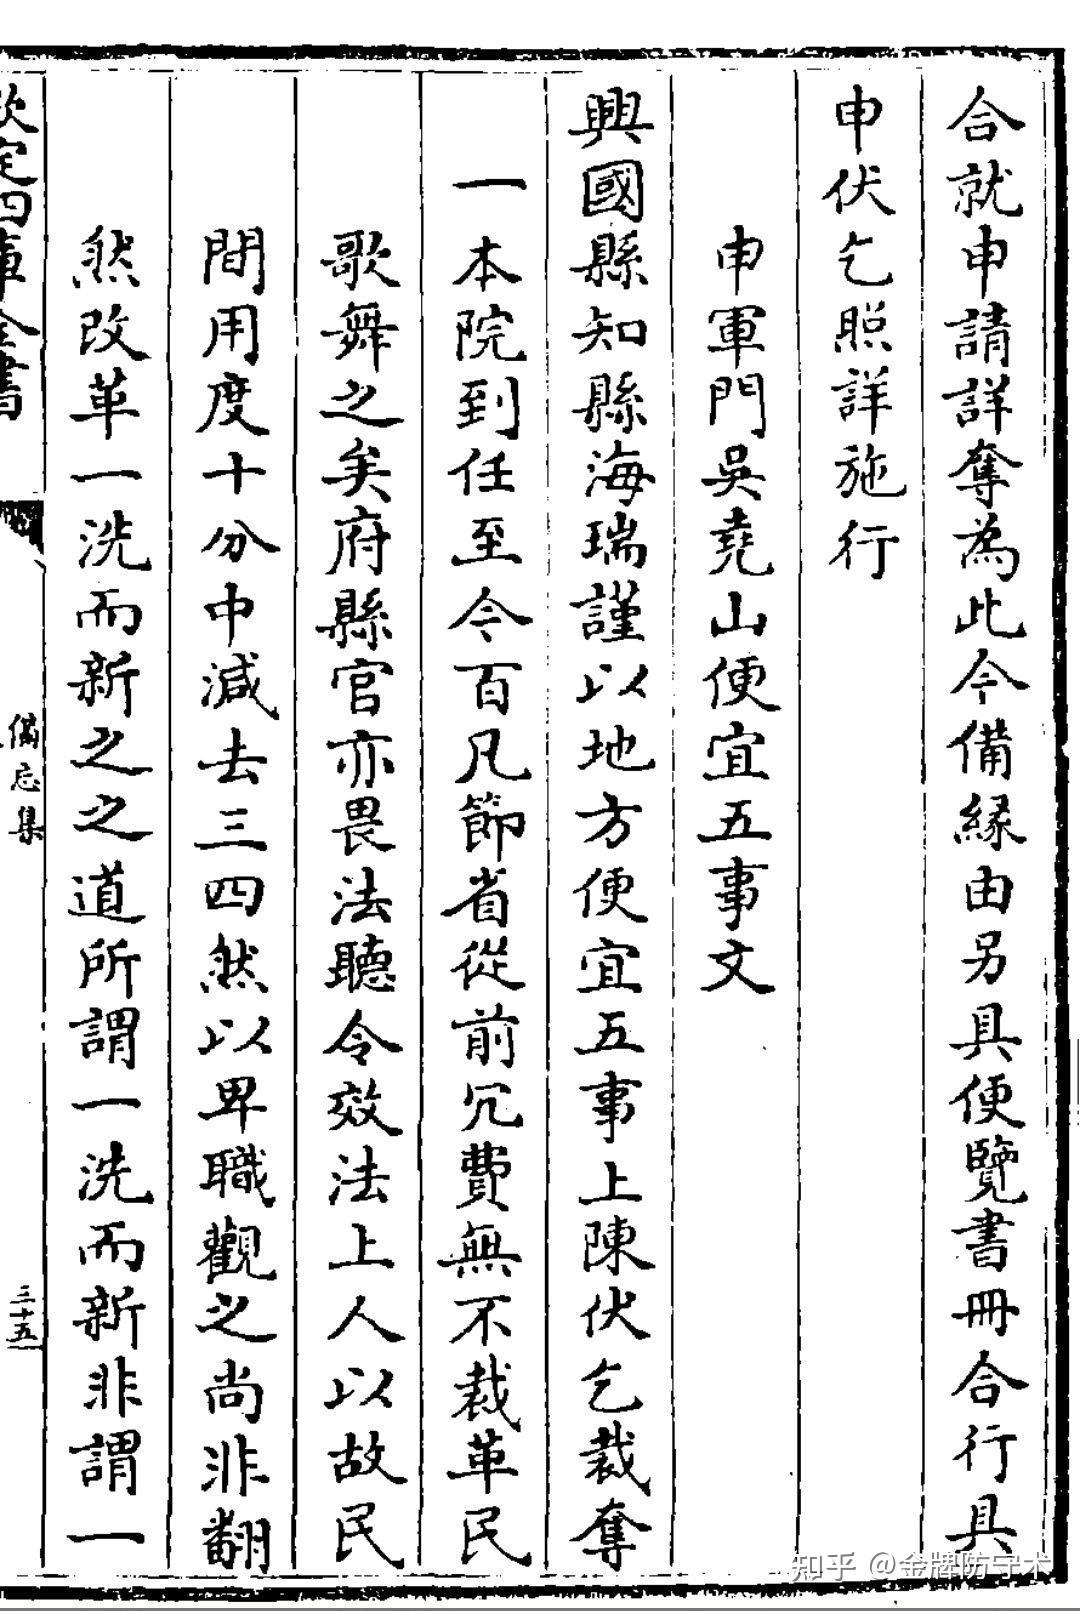 合就申請詳奪為此今備縁由另具便覽書冊合行具
申伏乞照詳施行
申軍門吳堯山便宜五事文
興國縣知縣海瑞謹以地方便宜五事上陳伏乞裁奪
一本院到任至今百凡節省從前冗費無不裁革民
歌舞之矣府縣官亦畏法聽令效法上人以故民
間用度十分中減去三四然以卑職觀之尚非翻
然改革一洗而新之之道所謂一洗而新非謂一
欽定四庫全書
備忘集
三十五
知乎 @金牌防守术